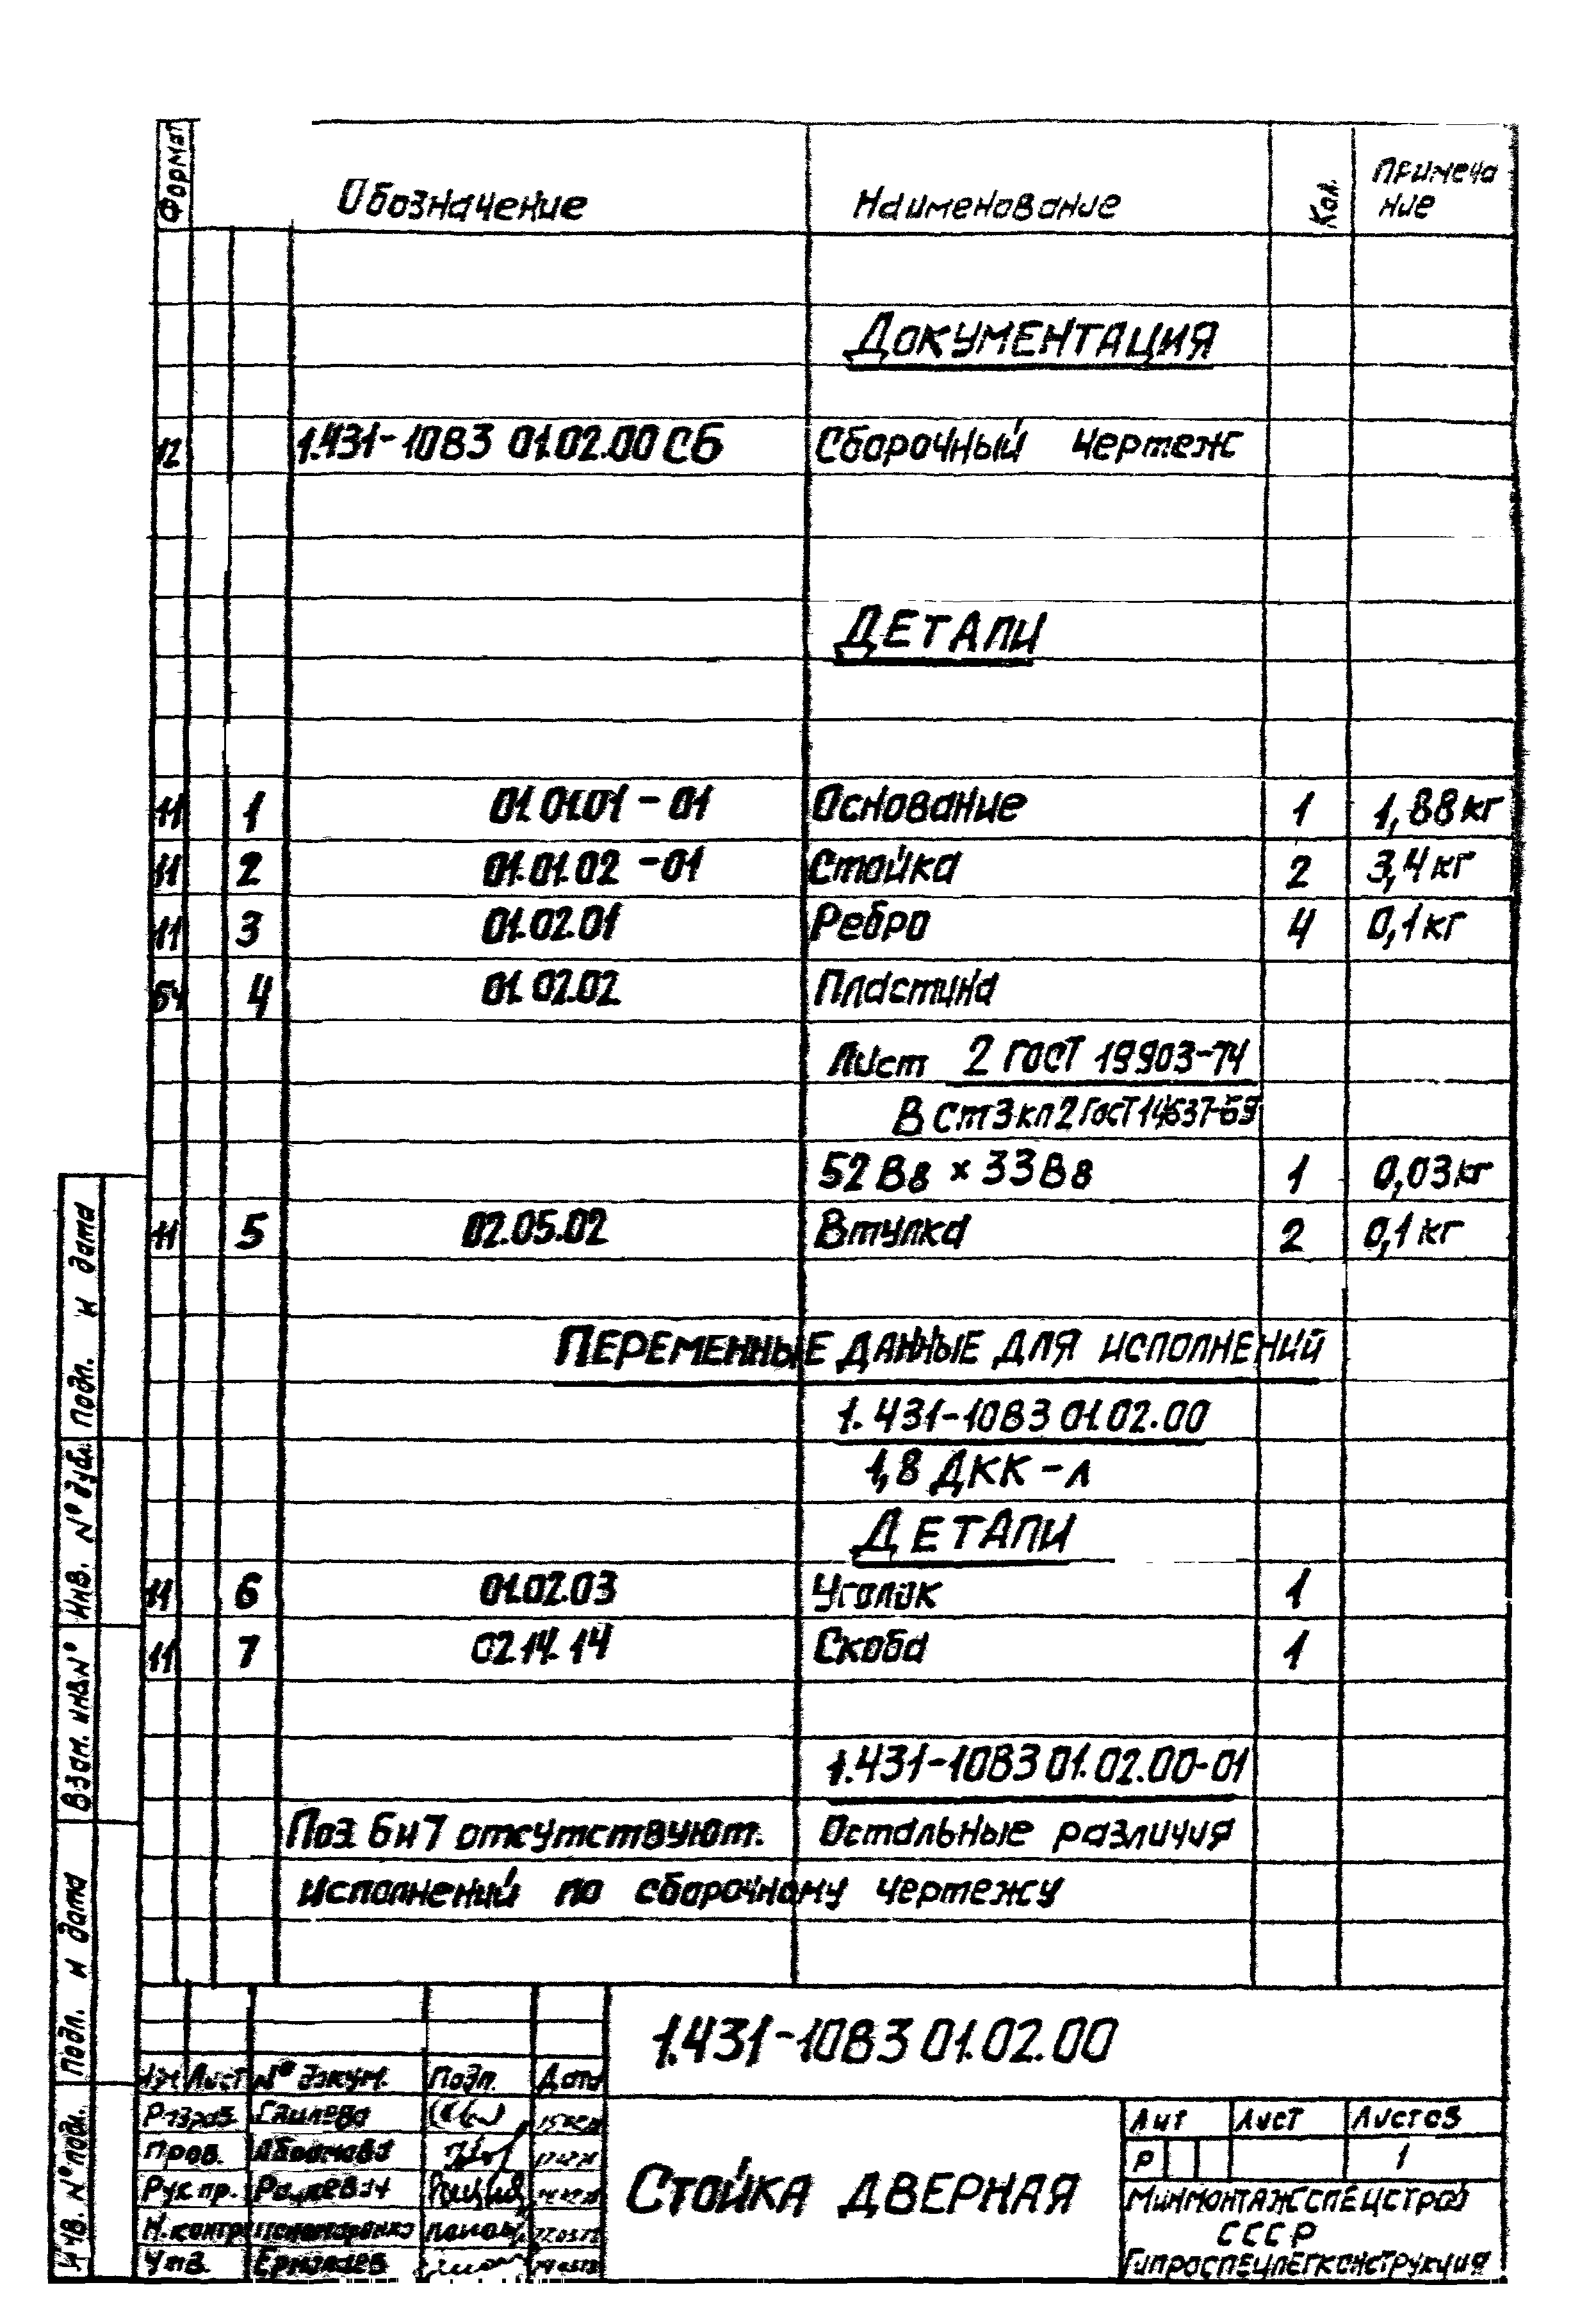 Формат Обозначение Наименование Кол. Примеча
ние
Документация
12 1.431-10В3 01.02.00 СБ Сборочный чертеж
Детали
11 1 01.01.01 - 01 Основание 1 1,88 кг
11 2 01.01.02 - 01 Стойка 2 3,4 кг
11 3 01.02.01 Ребро 4 0,1 кг
БЧ 4 01.02.02 Пластина
Лист 2 ГОСТ 19903-74
В Ст3кп2 ГОСТ 14637-69
52В8 × 33В8 1 0,03 кг
11 5 02.05.02 Втулка 2 0,1 кг
Переменные данные для исполнений
1.431-10В3 01.02.00
1,8 ДКК - Л
Детали
11 6 01.02.03 Уголок 1
11 7 02.14.14 Скоба 1
1.431-10В3 01.02.00-01
Поз. 6 и 7 отсутствуют. Остальные различия
исполнений по сборочному чертежу
1.431-10В3 01.02.00
Изм Лист № докум. Подп. Дата
Разраб.
Пров. Абрамова
Рук. пр.
Н. контр. Пономаренко
Утв. Ермолаев
Стойка дверная
Лит Лист Листов
Р 1
Минмонтажспецстрой
СССР
Гипроспецлегконструкция
Инв. № подл.
Подп. и дата
Взам. инв. №
Инв. № дубл.
Подп. и дата